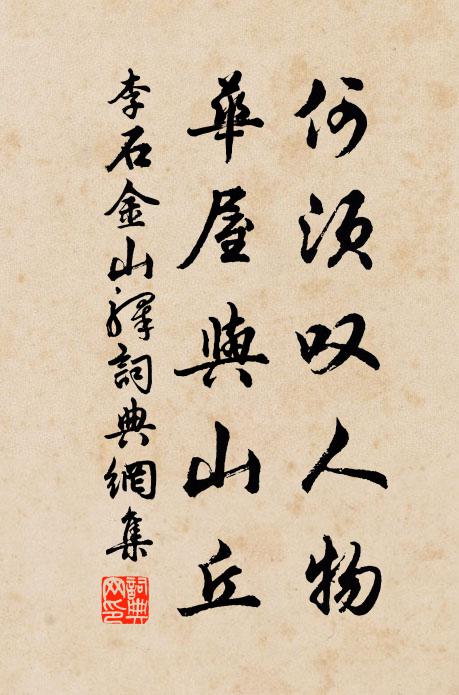 何須叹人物
華屋與山丘
李石金山驛詞典網集
詞典
网印